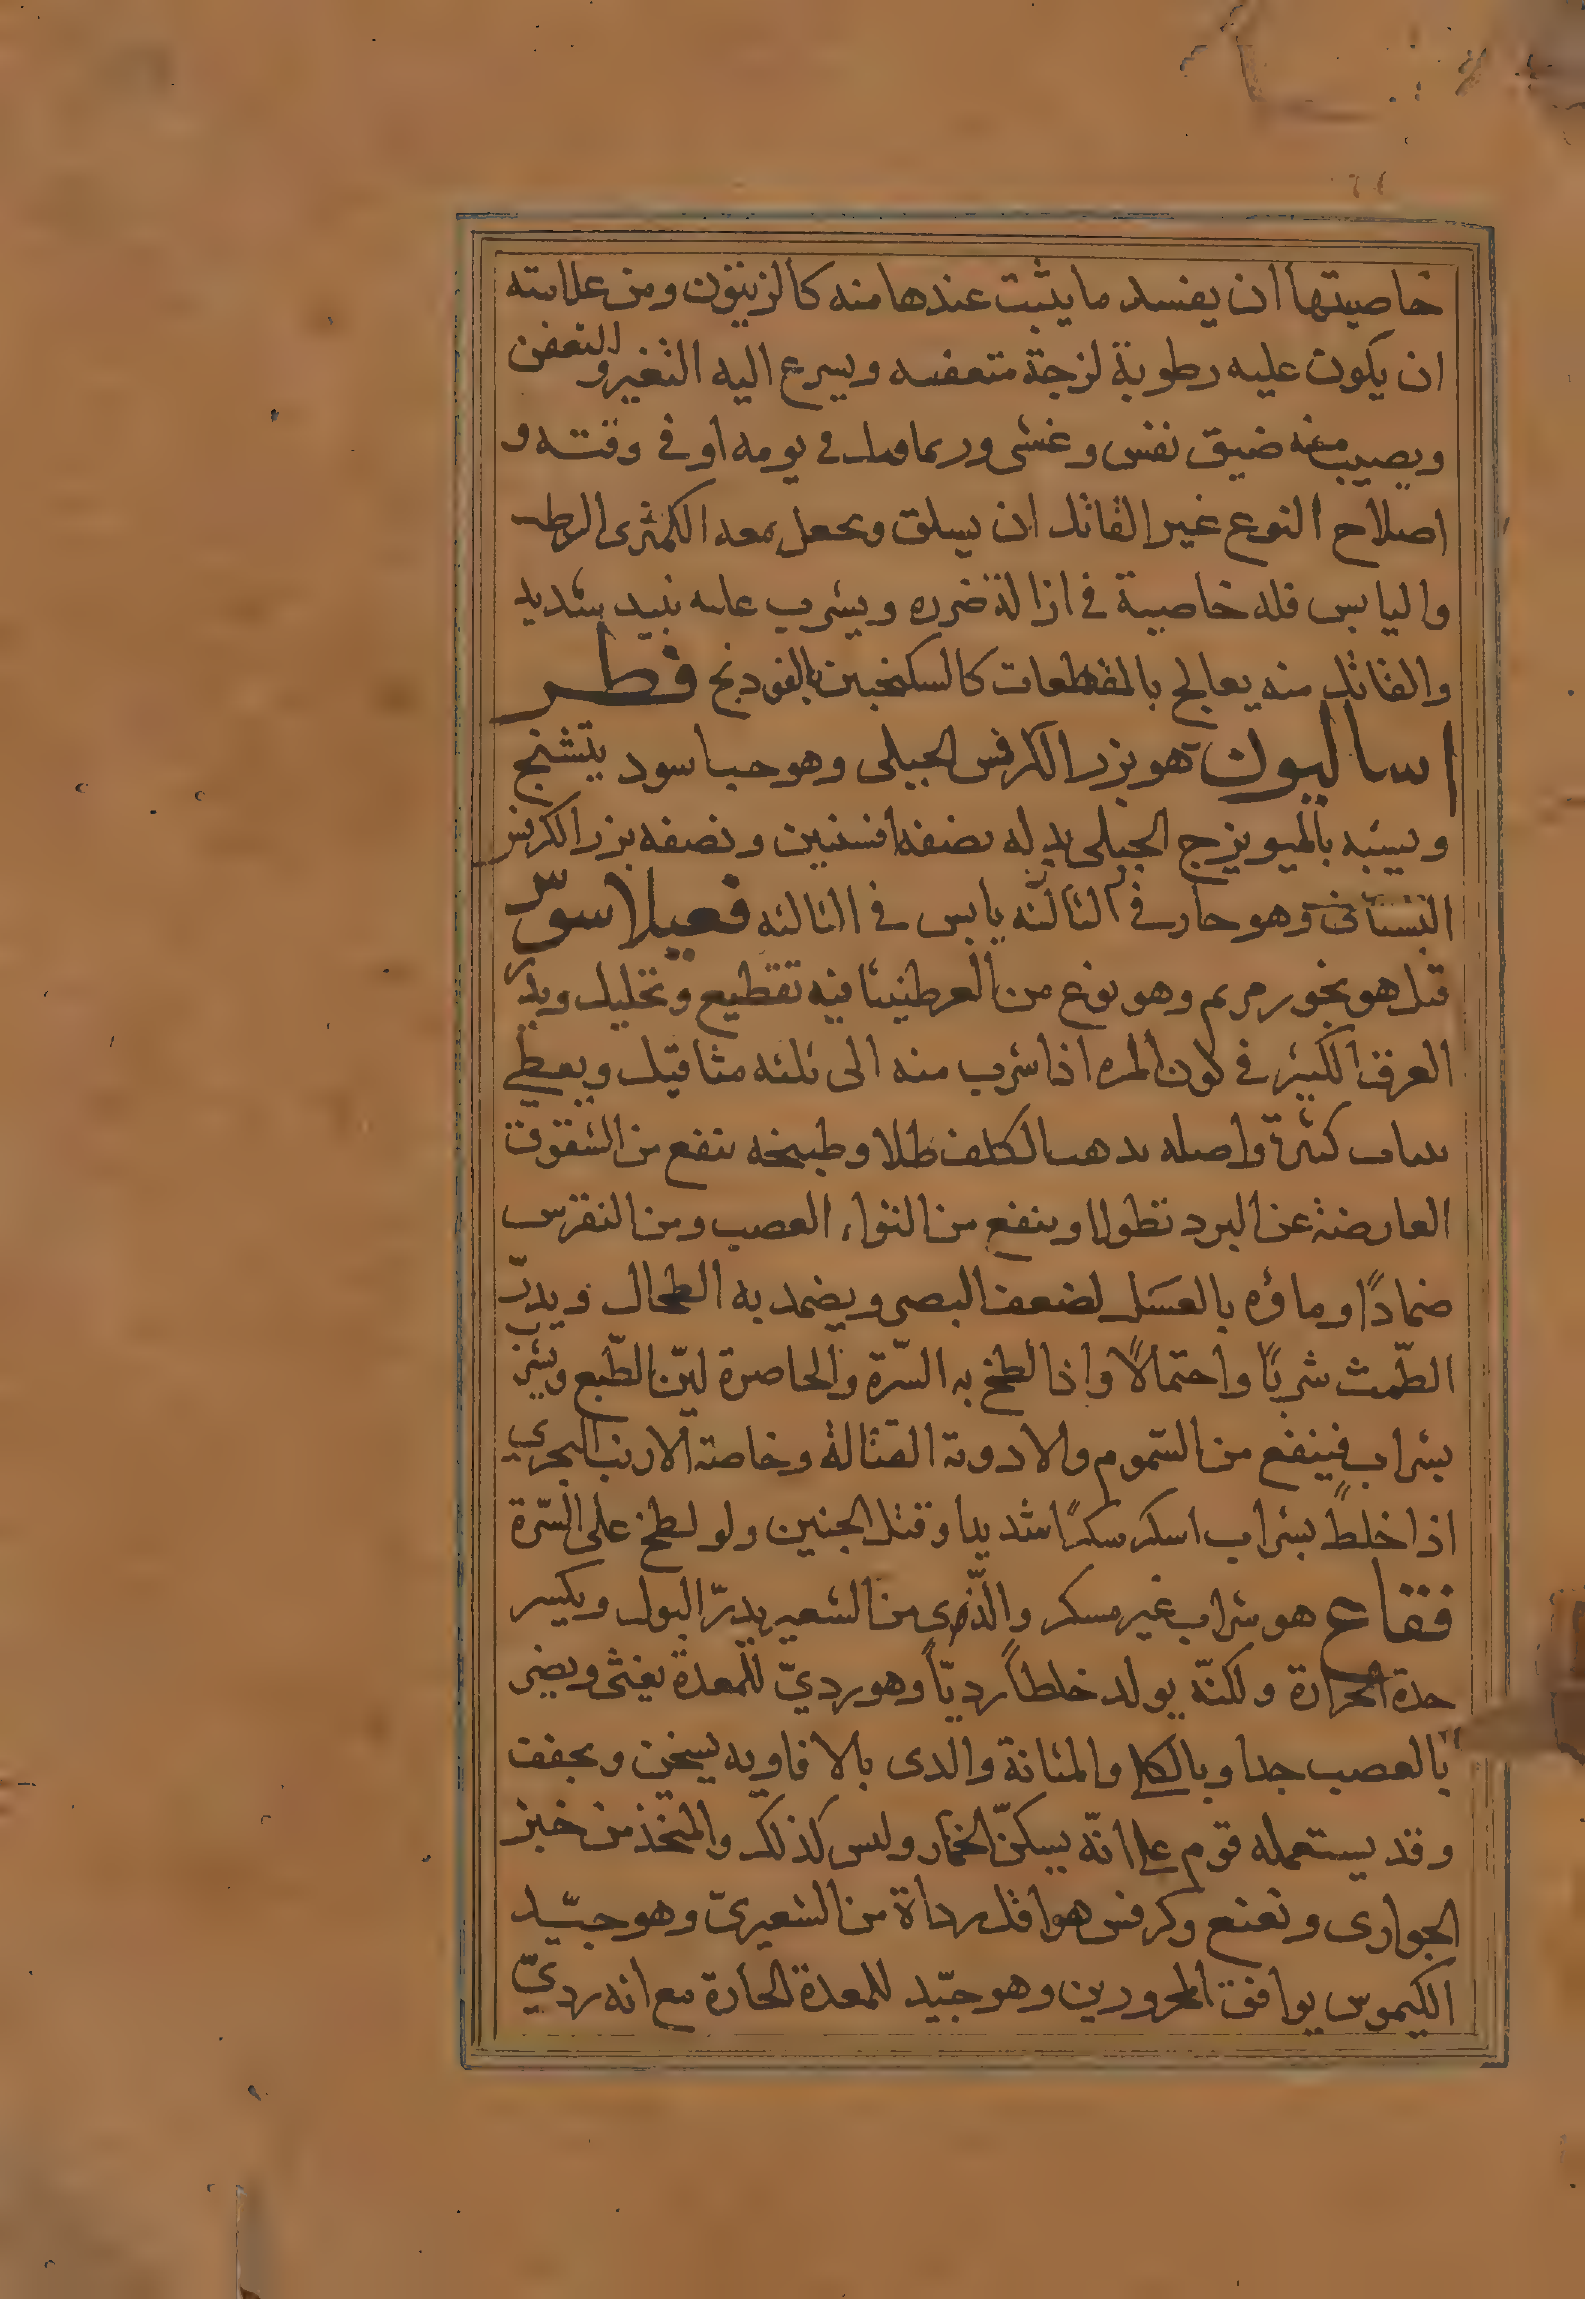 خاصيتها ان يفسد ما ينبت عندها منه كالزيتون ومن علامته
ان يكون عليه رطوبة لزجة متعفنه ويسرع اليه التغير والتعفن
ويصيب منه ضيق نفس وغشى وربما قتل فى يومه او فى وقته و
اصلاح النوع غير القاتل ان يسلق ويجعل معه الكمثرى الرطب
واليابس فله خاصية فى ازالة ضرره ويشرب عليه نبيد شديد
والقاتل منه يعالج بالمقطعات كالسكنجبين بالفودنج فطر
اساليون هو بزر الكرفس الجبلى وهو حب اسود يتشنج
ويشبه بالميويزج الجبلى بدله نصفه افسنتين ونصفه بزر الكرفس
البستانى وهو حار فى الثالثه يابس فى الثالثه
قيل هو بخور مريم وهو نوع من العرطنيثا فيه تقطيع وتحليل ويدر
العرق الكثير فى لون المره اذا شرب منه الى ثلثه مثاقيل ويعطى
كثيرة واصله يدهب الكلف طلا وطبيخه ينفع من الشقوق
العارضة عن البرد نطولا وينفع من التواء العصب ومن النقرس
ضمادًا وماؤه بالعسَل لضعف البصر ويضمد به الطحال ويدرّ
الطّمث شربًا واحتمالًا واذا لطخ به السّرة والخاصرة ليّن الطّبع ويشرب
بشراب فينفع من السّموم والادوية القتالة وخاصة الارنب البحرى
اذا خلط بشراب اسكر سكرًا شديدا وقتل الجنين ولو لطخ على السّرة
فقاع هو شراب غير مسكر والّذى من الشعير يدرّ البول ويكسر
حدة الحرارة ولكنّه يولد خلطاً رديّاً وهو رديّ للمعدة يغثى ويضر
بالعصب جدا وبالكلى والمثانة والدى بالافاويه يسخن ويجفف
وقد يستعمله قوم على انّه يسكّن الخمار وليس كذلك والمتخذ من خبز
الحوارى ونعنع وكرفس هو اقل رداة من الشعيرىّ وهو جيّد
الكيموس يوافق المحرورين وهو جيّد للمعدة الحارة مع انه رديّ